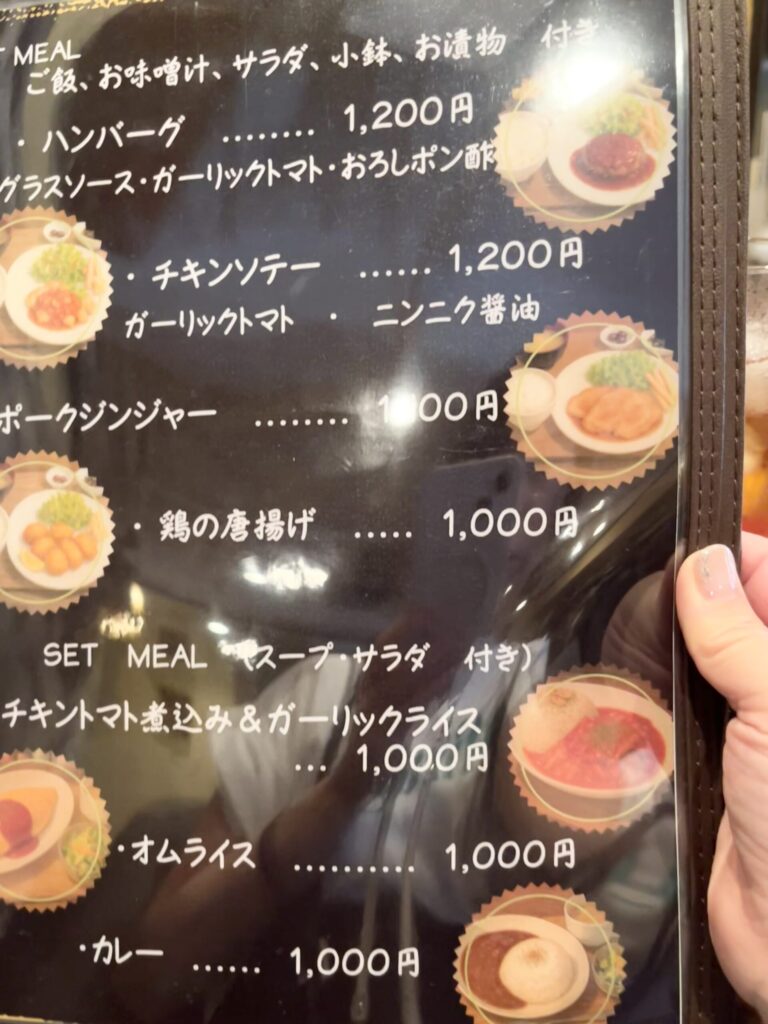 MEAL
ご飯、お味噌汁、サラダ、小鉢、お漬物 付き
・ハンバーグ ........ 1,200円
グラスソース・ガーリックトマト・おろしポン酢
・チキンソテー ...... 1,200円
ガーリックトマト ・ ニンニク醤油
ポークジンジャー ........
・鶏の唐揚げ ..... 1,000円
SET MEAL (スープ・サラダ 付き)
チキントマト煮込み＆ガーリックライス
... 1,000円
・オムライス .......... 1,000円
・カレー ...... 1,000円